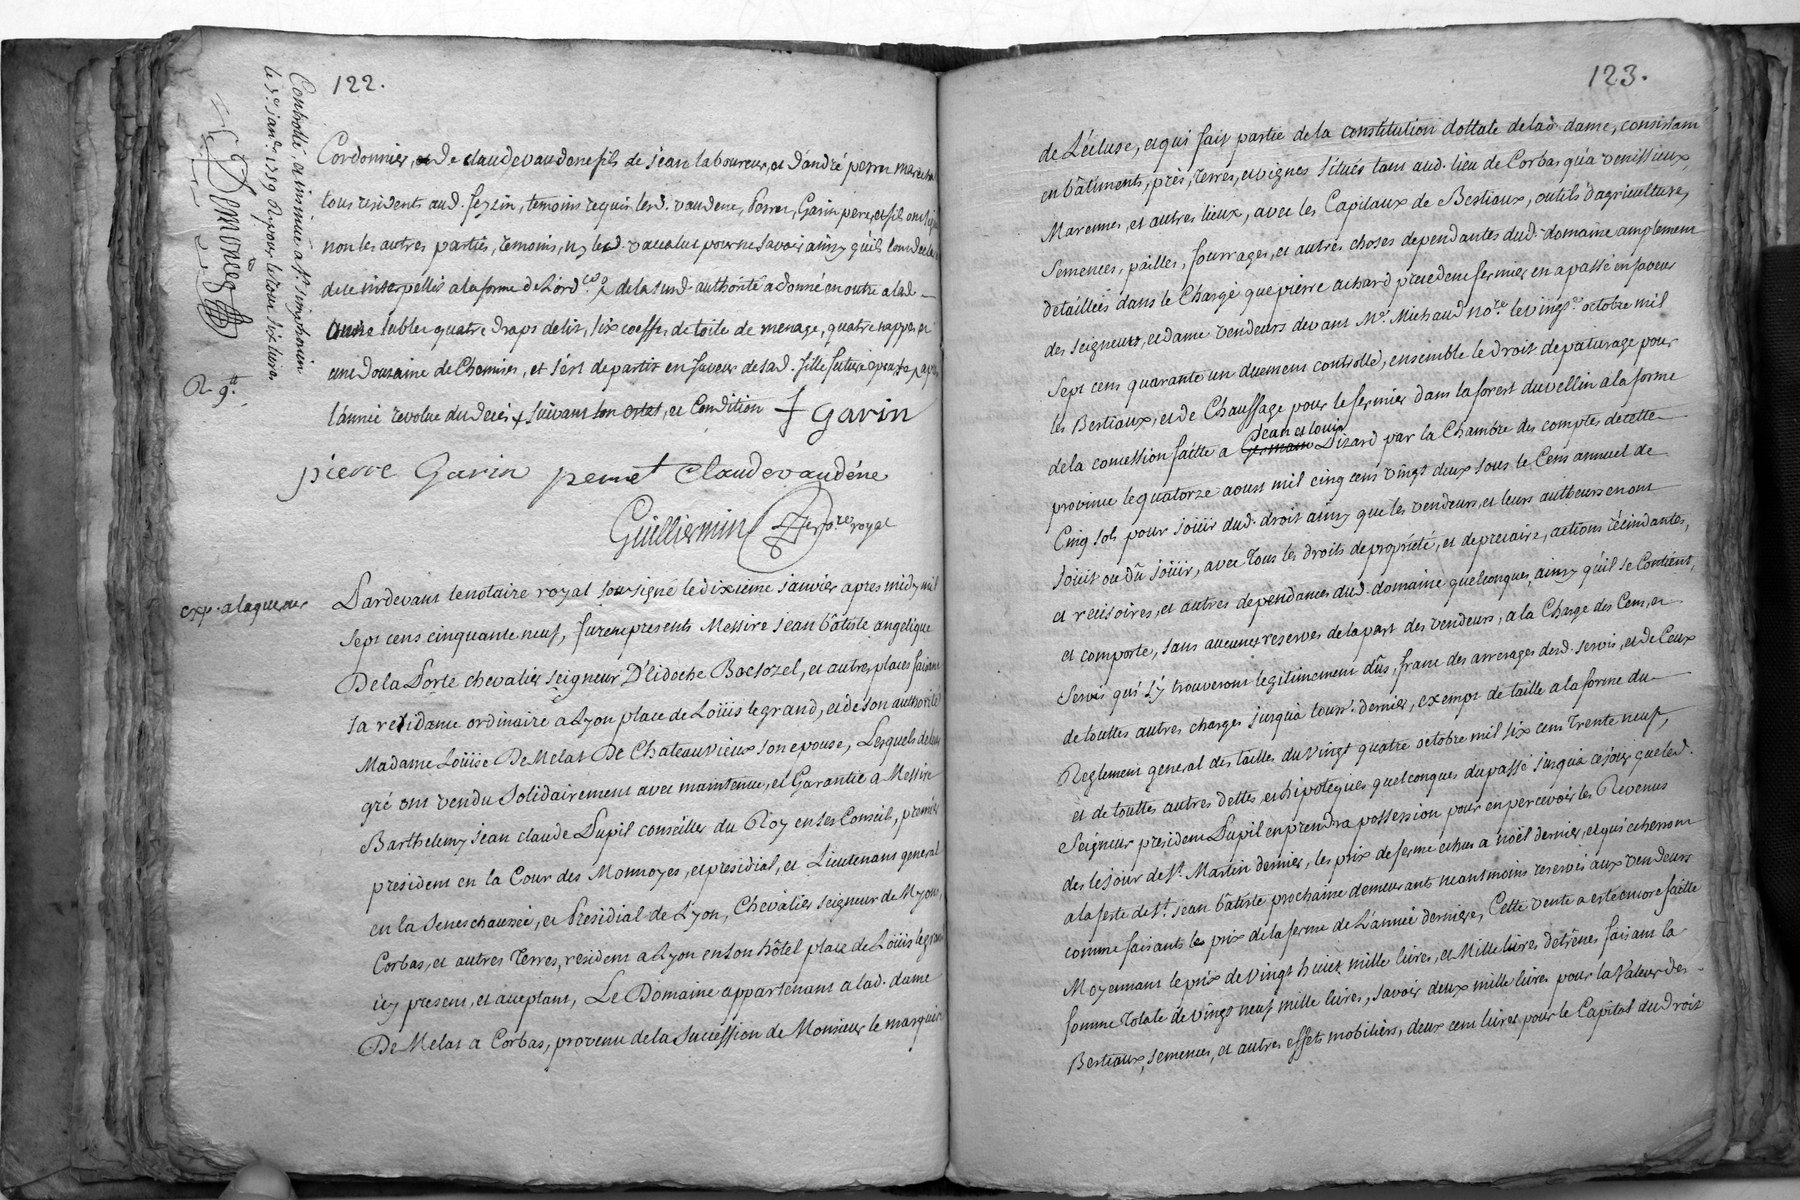 122.
Controllé, et insinué a st. simphorien
le 3e. janer. 1759. R. pour le tout six livres
Demorces
R. 9tt
Cordonnier, et de claude vaudene fils de jean laboureur, et d'andré perret
tous residents aud. feyzin, temoins requis lesd. vaudene, Perret, Garin pere, et fils ont signé
non les autres parties, temoins, ny led. pour ne savoir ainsy qu'ils l'ont declaré
de ce interpellés a la forme de L'ordce. de la susd. authorité a donné en outre a lad.
Anne table quatre draps de lit, six coeffes de toile de menage, quatre nappes, et
une Douzaine de Chemises, et s'est departie en faveur de sad. fille future epouse
l'année revolue du deces + suivant son estat, et Condition + Garin
pierre Garin perret claude vaudéne
Guilliermin nore. royal
exp. a la quereur
Pardevant le notaire royal sousigné le dixieme janvier apres midy mil
sept cens cinquante neuf, furent presents Messire jean bâtiste angelique
De la Porte chevalier seigneur D'Eidoche Bocsozel, et autres places faisant
sa residance ordinaire a Lyon place de Loüis le grand, et de son authorité
Madame Loüise De Melat De Chateauvieux son epouse, Lesquels de leur
gré ont vendu solidairement avec maintenue, et Garantie a Messire
Barthelemy jean claude Pupil conseiller du Roy en ses Conseils, premier
president en la Cour des Monnoyes, et presidial, et Lieutenant general
en la Seneschaussée, et Presidial de Lyon, Chevalier seigneur de Myons,
Corbas, et autres Terres, resident a Lyon en son hôtel place de Loüis le grand
icy present, et acceptant, Le Domaine appartenant a lad. dame
De Melat a Corbas, provenu de la succession de Monsieur le marquis
123.
de L'écluse, et qui fait partie de la constitution dottale de lad. dame, consistant
en bâtiments, prés, Terres, et vignes situés tant aud. lieu de Corbas qu'a venissieux,
Marennes, et autres lieux, avec les Capitaux de Bestiaux, outils d'agriculture,
semences, pailles, fourrages, et autres choses dependantes dud. domaine amplement
detaillées dans le Chargé que pierre achard precedent fermier en a passé en faveur
des seigneur, et dame vendeurs devant Me. Michaud nore. le vingte. octobre mil
sept cens quarante un duement controllé, ensemble le droit de paturage pour
les Bestiaux, et de Chauffage pour le fermier dans la forest du vellin a la forme
de la concession faitte a Germain jean et louis Dizard par la Chambre des comptes de cette
province le quatorze aoust mil cinq cens vingt deux sous le Cens annuel de
Cinq sols pour joüir dud. droit ainsy que les vendeurs, et leurs autheurs en ont
joüit ou dû joüir, avec tous les droits de propriété, et de precaire, actions récindantes,
et recisoires, et autres dependances dud. domaine quelconques, ainsy qu'il se Contient,
et comporte, sans aucunes reserves de la part des vendeurs, a la Charge des Cens, et
servis qui s'y trouveront legitimement dûs, franc des arrerages desd. servis, et de Ceux
de touttes autres charges jusqu'a tout . dernier, exempt de taille a la forme du
Reglement general des tailles du vingt quatre octobre mil six cens trente neuf,
et de touttes autres dettes, et hipoteques quelconques du passé jusqu'a ce jour que led.
Seigneur president Pupil en prendra possession pour en percevoir les Revenus
des le jour de st. Martin dernier, les prix de ferme echus a noël dernier, et qui echerront
a la feste de st. jean bâtiste prochaine demeurants neantmoins reservés aux vendeurs
comme faisants le prix de la ferme de L'année derniere, Cette vente a esté encore faitte
Moyennant le prix de vingt huict mille livres, et Mille livres d'etrênes faisant la
somme totale de vingt neuf mille livres, savoir deux mille livres pour la valeur des
Bestiaux, semences, et autres effets mobiliers, deux cent livres pour le Capital du droit